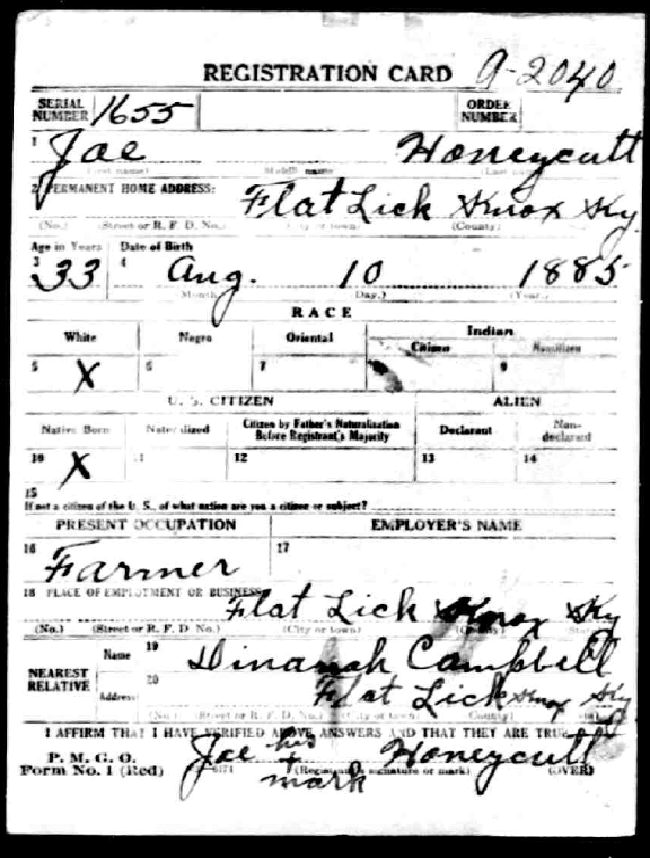 REGISTRATION CARD A-2040
SERIAL NUMBER 1655 ORDER NUMBER
1 Joe Honeycutt
(First name) (Middle name) (Last name)
2 PERMANENT HOME ADDRESS: Flat Lick Knox Ky
(No.) (Street or R. F. D. No.) (City or town) (County)
Age in Years Date of Birth
3 33 4 Aug. 10 1885
(Month.) (Day.) (Year.)
RACE
White Negro Oriental Indian
Citizen Noncitizen
5 X 6 7 9
U. S. CITIZEN ALIEN
Native Born Naturalized Citizen by Father's Naturalization Before Registrant's Majority Declarant Non-declarant
10 X 11 12 13 14
15
If not a citizen of the U. S., of what nation are you a citizen or subject?
PRESENT OCCUPATION EMPLOYER'S NAME
16 Farmer 17
18 PLACE OF EMPLOYMENT OR BUSINESS: Flat Lick Knox Ky
(No.) (Street or R. F. D. No.) (City or town) (County) (State)
NEAREST RELATIVE Name 19 Campbell
Address 20 Flat Lick Knox Ky
(No.) (Street or R. F. D. No.) (City or town) (County)
I AFFIRM THAT I HAVE VERIFIED ABOVE ANSWERS AND THAT THEY ARE TRUE
P. M. G. O. Joe his + mark Honeycutt
Form No. 1 (Red) (Registrant's signature or mark) (OVER)